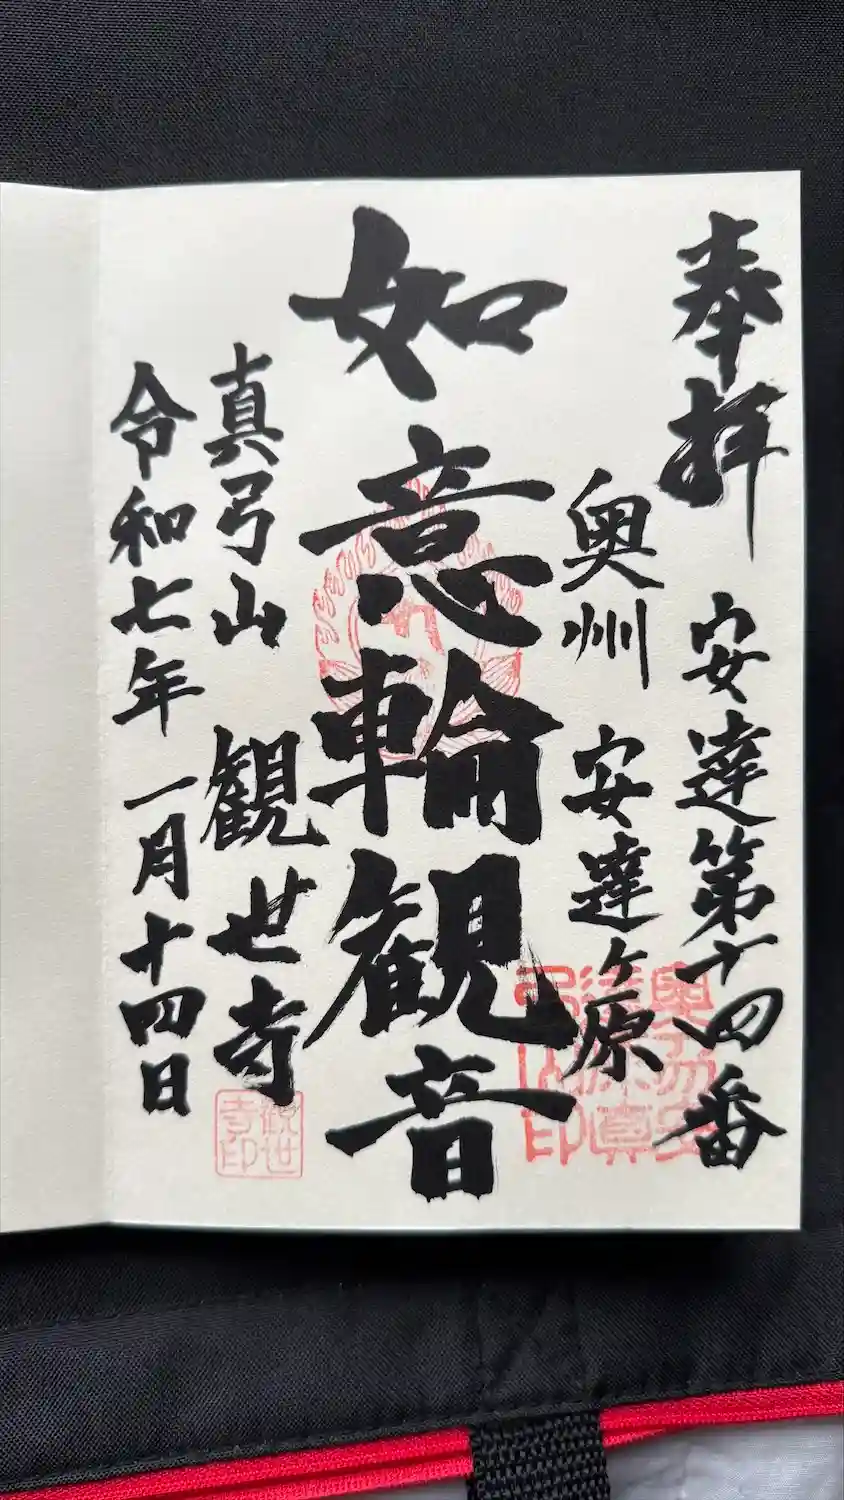 奉拝 安達第十四番
奥州 安達ヶ原
如意輪観音
真弓山 観世寺
令和七年 一月十四日
観世寺印